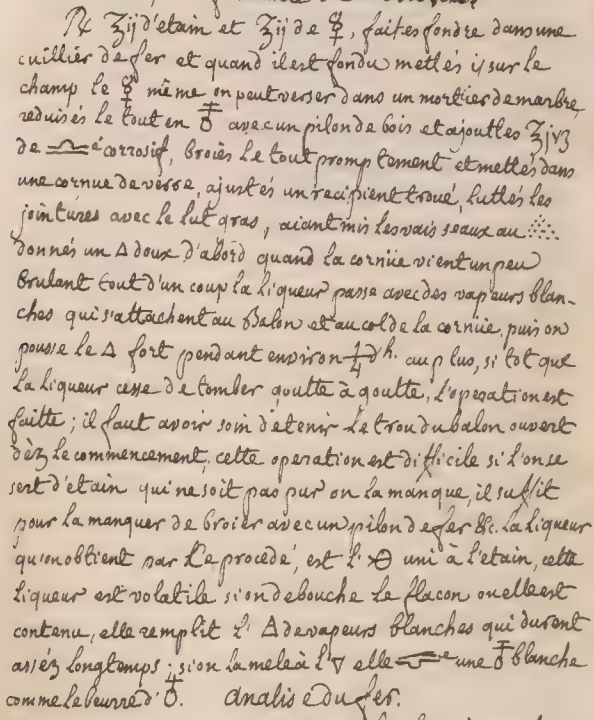 ℞ ℥ij d'etain et ℥ij de ☿, faites fondre dans une
cuillier de fer et quand il est fondu mettés ij sur le
champ le ☿ même on peut verser dans un mortier de marbre,
reduisés le tout en avec un pilon de bois et ajouttes ℥jv
de é corrosif, broiés le tout promptement et mettés dans
une cornue de verre, ajustés un recipient troué, luttés les
jointures avec le lut gras, aiant mis les vaisseaux au
donnés un △ doux d'abord quand la cornüe vient un peu
brulant tout d'un coup la liqueur passe avec des vapeurs blan-
ches qui s'attachent au Balon et au col de la cornüe, puis on
pousse le △ fort pendant environ ¼ d'h. au plus, si tot que
la liqueur cesse de tomber goutte à goutte, l'operation est
faitte; il faut avoir soin de tenir le trou du balon ouvert
dèz le commencement, cette operation est difficile si l'on se
sert d'etain qui ne soit pas pur on la manque, il suffit
pour la manquer de broier avec un pilon de fer &c. la liqueur
qu'on obtient par ce procedé, est l' uni à l'etain, cette
liqueur est volatile si on debouche le flacon ou elle est
contenu, elle remplit l' de vapeurs blanches qui durent
asséz longtemps; si on la mele à l'▽ elle une blanche
comme le beurre d'♁. Analise du fer.